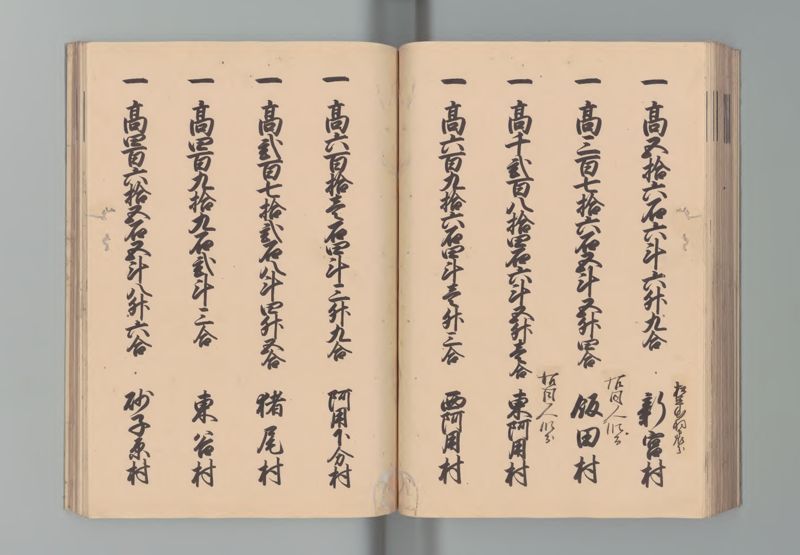 一 高五拾六石六斗六升九合 新宮村
一 高三百七拾六石五斗五升四合 飯田村
一 高千弐百八拾四石六斗五升壱合 東阿用村
一 高六百九拾六石四斗壱升三合 西阿用村
一 高六百拾壱石四斗三升九合 阿用下分村
一 高弐百七拾弐石八斗四升五合 猪尾村
一 高四百九拾九石弐斗三合 東谷村
一 高四百六拾五石五斗八升六合 砂子原村